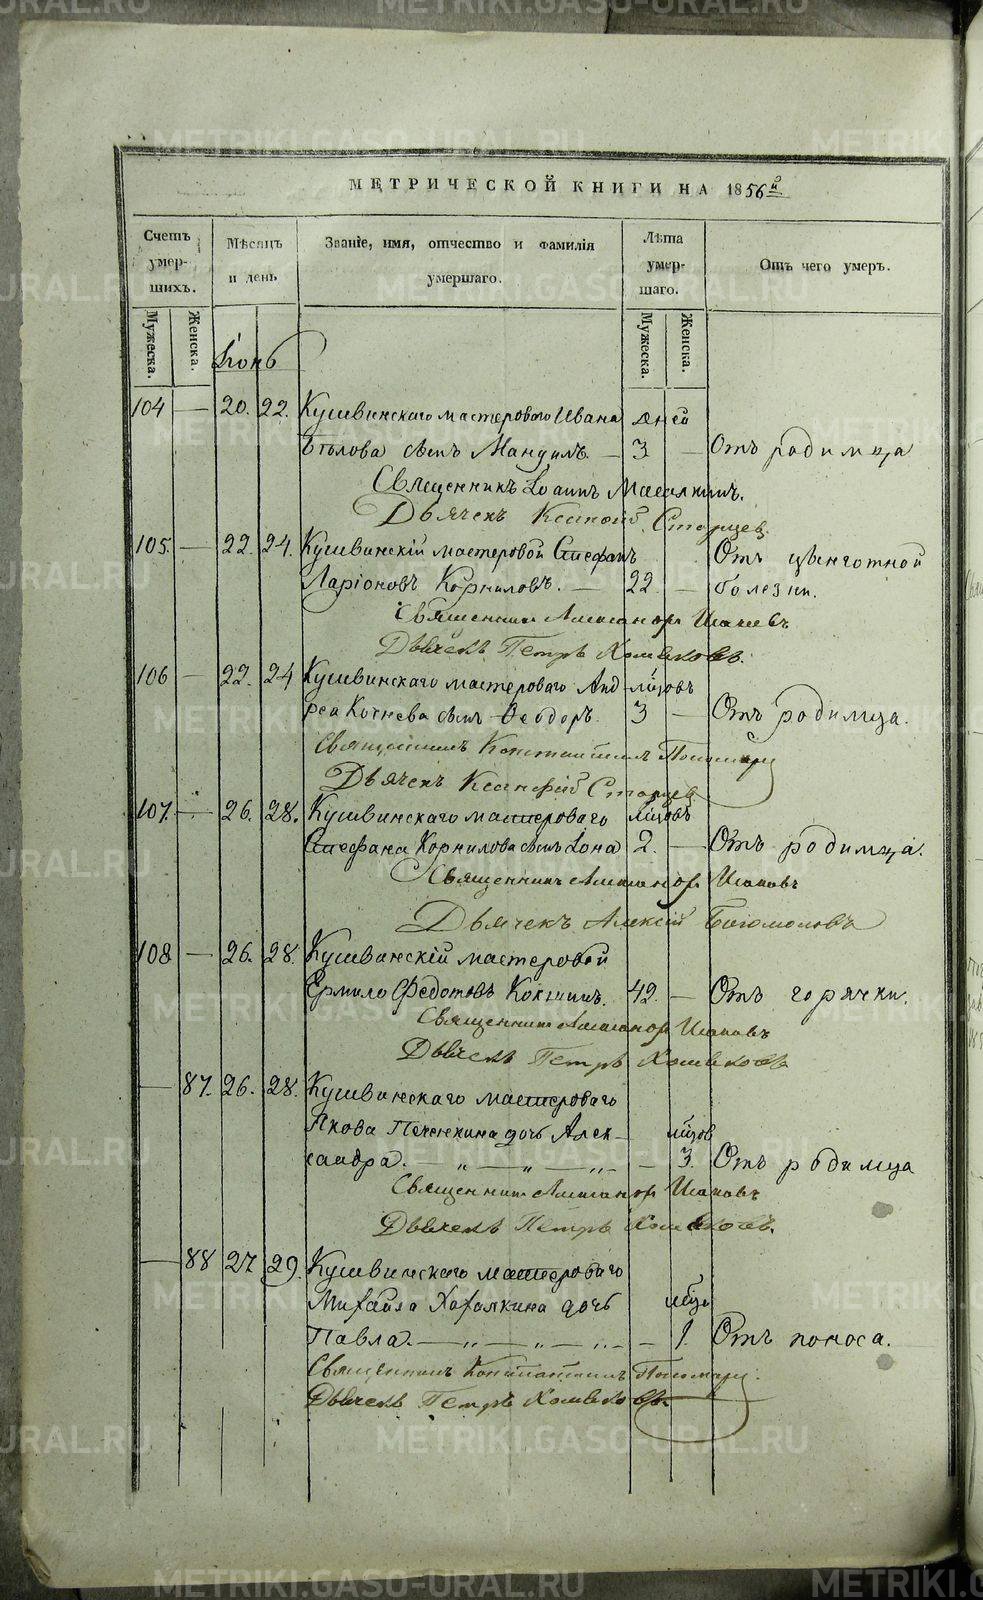 МЕТРИЧЕСКОЙ КНИГИ НА 1856й
Счетъ умер-шихъ. Мѣсяцъ и день Званіе, имя, отчество и фамилія умершаго. Лѣта умер-шаго. Отъ чего умеръ.
Мужеска. Женска. Мужеска. Женска.
Іюнь
104 — 20. 22. Кушвинскаго мастероваго Ивана дней
сынъ 3 — Отъ родимца
Священникъ Іоаннъ
Дьячекъ Старцев
105. — 22. 24. Кушвинскій мастеровой Стефанъ Отъ цынготной
Ларіоновъ Корниловъ. — 22. — болезни.
Священникъ
Дьячекъ Петръ Хомяковъ.
106 — 22. 24 Кушвинскаго мастероваго Анд- м҃цовъ
рея сынъ Ѳеодоръ. 3 — Отъ родимца.
Священникъ Константинъ
Дьячекъ Ксанфій Старцев
107. — 26. 28. Кушвинскаго мастероваго м҃цовъ
Стефана Корнилова сынъ Іона 2. — Отъ родимца.
Священникъ
Дьячекъ Алексій Богомоловъ
108 — 26. 28. Кушвинскій мастеровой
Ермило Федотовъ Кокшинъ. 42. — Отъ горячки.
Священникъ
Дьячекъ Петръ Хомяковъ
— 87. 26. 28. Кушвинскаго мастероваго
Якова дочь Алек- м҃цов
сандра. — „ — „ — „ — 3. Отъ родимца
Священникъ
Дьячекъ Петръ Хомяковъ.
— 88 27 29. Кушвинскаго мастероваго
Михайла дочь м҃цъ
Павла. — „ — „ — „ — 1. Отъ поноса.
Священникъ Константинъ
Дьячекъ Петръ Хомяковъ.
METRIKI.GASO-URAL.RU